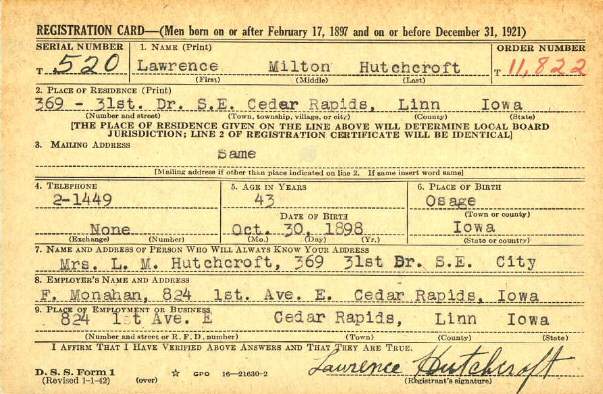 REGISTRATION CARD—(Men born on or after February 17, 1897 and on or before December 31, 1921)
SERIAL NUMBER 1. NAME (Print) ORDER NUMBER
T 520 Lawrence Milton Hutchcroft T 11,822
(First) (Middle) (Last)
2. PLACE OF RESIDENCE (Print)
369 - 31st. Dr. S.E. Cedar Rapids, Linn Iowa
(Number and street) (Town, township, village, or city) (County) (State)
[THE PLACE OF RESIDENCE GIVEN ON THE LINE ABOVE WILL DETERMINE LOCAL BOARD
JURISDICTION; LINE 2 OF REGISTRATION CERTIFICATE WILL BE IDENTICAL]
3. MAILING ADDRESS
Same
[Mailing address if other than place indicated on line 2. If same insert word same]
4. TELEPHONE 5. AGE IN YEARS 6. PLACE OF BIRTH
2-1449 43 Osage
DATE OF BIRTH (Town or county)
None Oct. 30, 1898 Iowa
(Exchange) (Number) (Mo.) (Day) (Yr.) (State or country)
7. NAME AND ADDRESS OF PERSON WHO WILL ALWAYS KNOW YOUR ADDRESS
Mrs. L. M. Hutchcroft, 369 31st Dr. S.E. City
8. EMPLOYER'S NAME AND ADDRESS
F. Monahan, 824 1st. Ave. E. Cedar Rapids, Iowa
9. PLACE OF EMPLOYMENT OR BUSINESS
824 1st Ave. E Cedar Rapids, Linn Iowa
(Number and street or R. F. D. number) (Town) (County) (State)
I AFFIRM THAT I HAVE VERIFIED ABOVE ANSWERS AND THAT THEY ARE TRUE.
D. S. S. Form 1 Lawrence Hutchcroft
(Revised 1-1-42) (over) ☆ GPO 16—21630-2 (Registrant's signature)